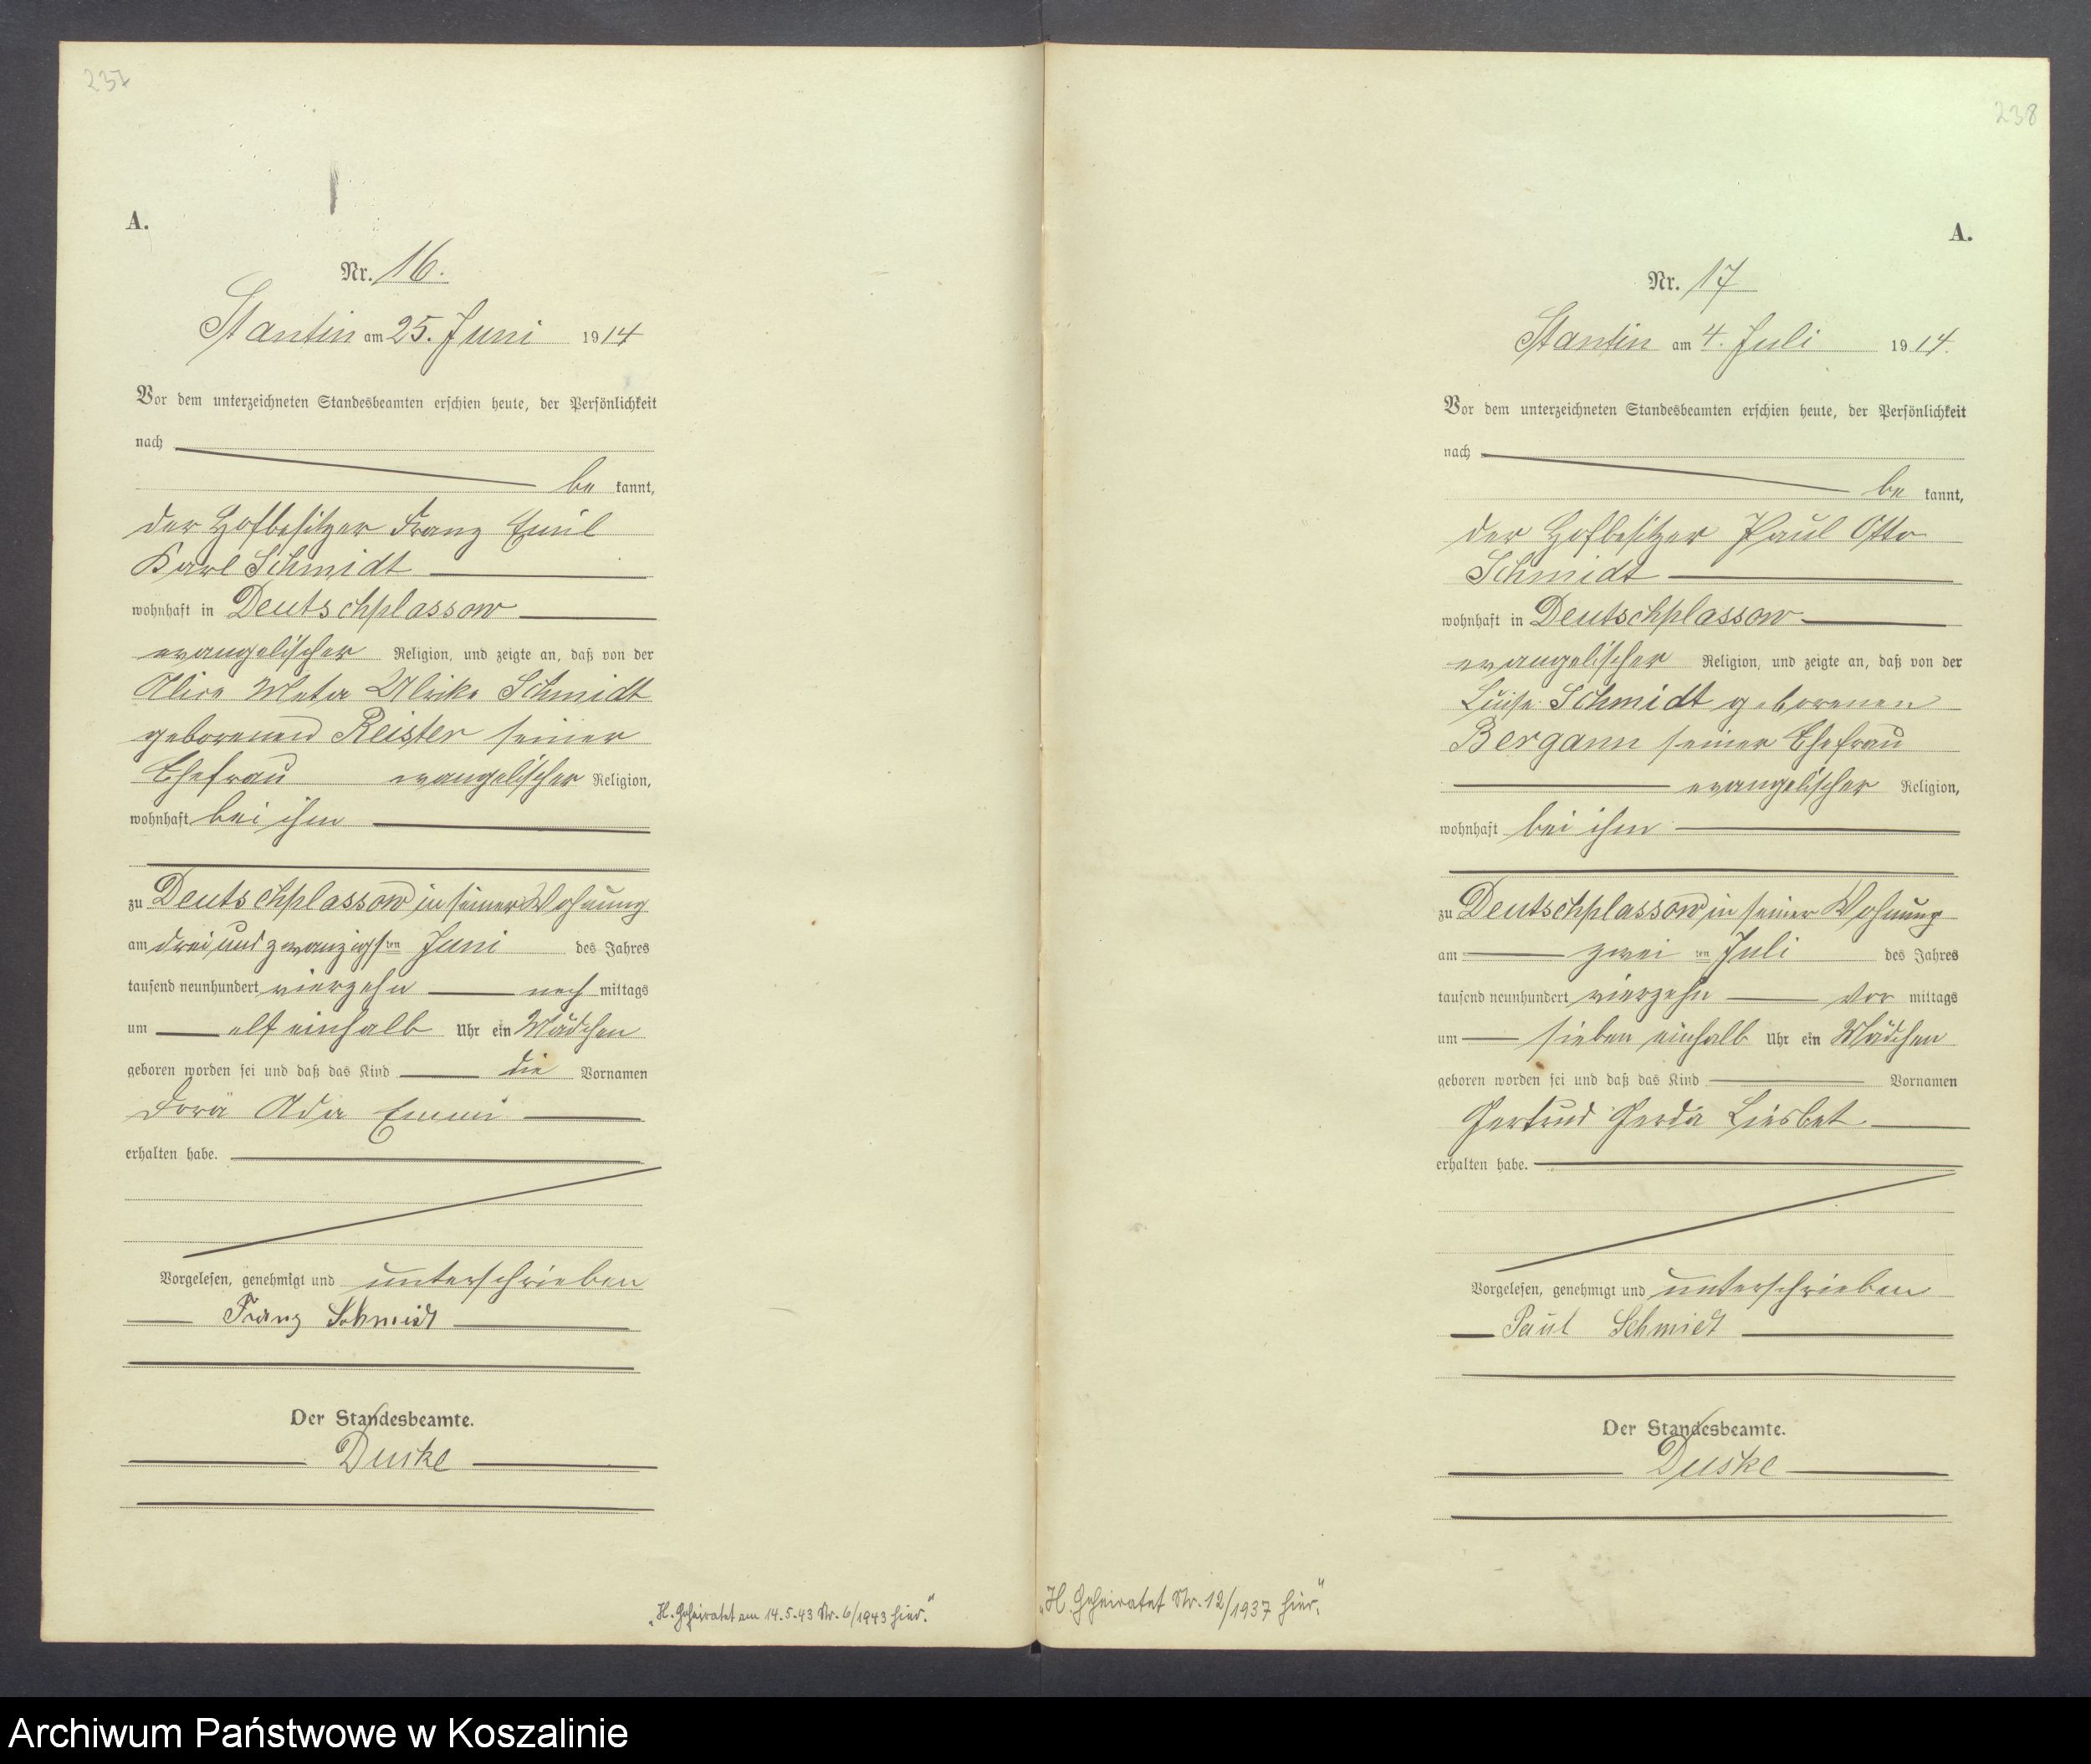 237
A.
Nr. 16.
Stantin am 25. Juni 1914
Vor dem unterzeichneten Standesbeamten erschien heute, der Persönlichkeit
nach
be kannt,
der Hofbesitzer Franz Emil
Karl Schmidt
wohnhaft in Deutschplassow
evangelischer Religion, und zeigte an, daß von der
Alice Meta Ulrike Schmidt
geborenen Reister seiner
Ehefrau evangelischer Religion,
wohnhaft bei ihm
zu Deutschplassow in seiner Wohnung
am drei und zwanzigsten Juni des Jahres
tausend neunhundert vierzehn nach mittags
um elf einhalb Uhr ein Mädchen
geboren worden sei und daß das Kind die Vornamen
Dora Ada Emmi
erhalten habe.
Vorgelesen, genehmigt und unterschrieben
Franz Schmidt
Der Standesbeamte.
Duske
„H. Geheiratet am 14.5.43 Nr. 6/1943 hier.“
238
A.
Nr. 17
Stantin am 4. Juli 1914.
Vor dem unterzeichneten Standesbeamten erschien heute, der Persönlichkeit
nach
be kannt,
der Hofbesitzer Paul Otto
Schmidt
wohnhaft in Deutschplassow
evangelischer Religion, und zeigte an, daß von der
Luise Schmidt geborenen
Bergann seiner Ehefrau
evangelischer Religion,
wohnhaft bei ihm
zu Deutschplassow in seiner Wohnung
am zwei ten Juli des Jahres
tausend neunhundert vierzehn vor mittags
um sieben einhalb Uhr ein Mädchen
geboren worden sei und daß das Kind Vornamen
Gertrud Gerda Liesbet
erhalten habe.
Vorgelesen, genehmigt und unterschrieben
Paul Schmidt
Der Standesbeamte.
Duske
„H. Geheiratet Nr. 12/1937 hier.“
Archiwum Państwowe w Koszalinie